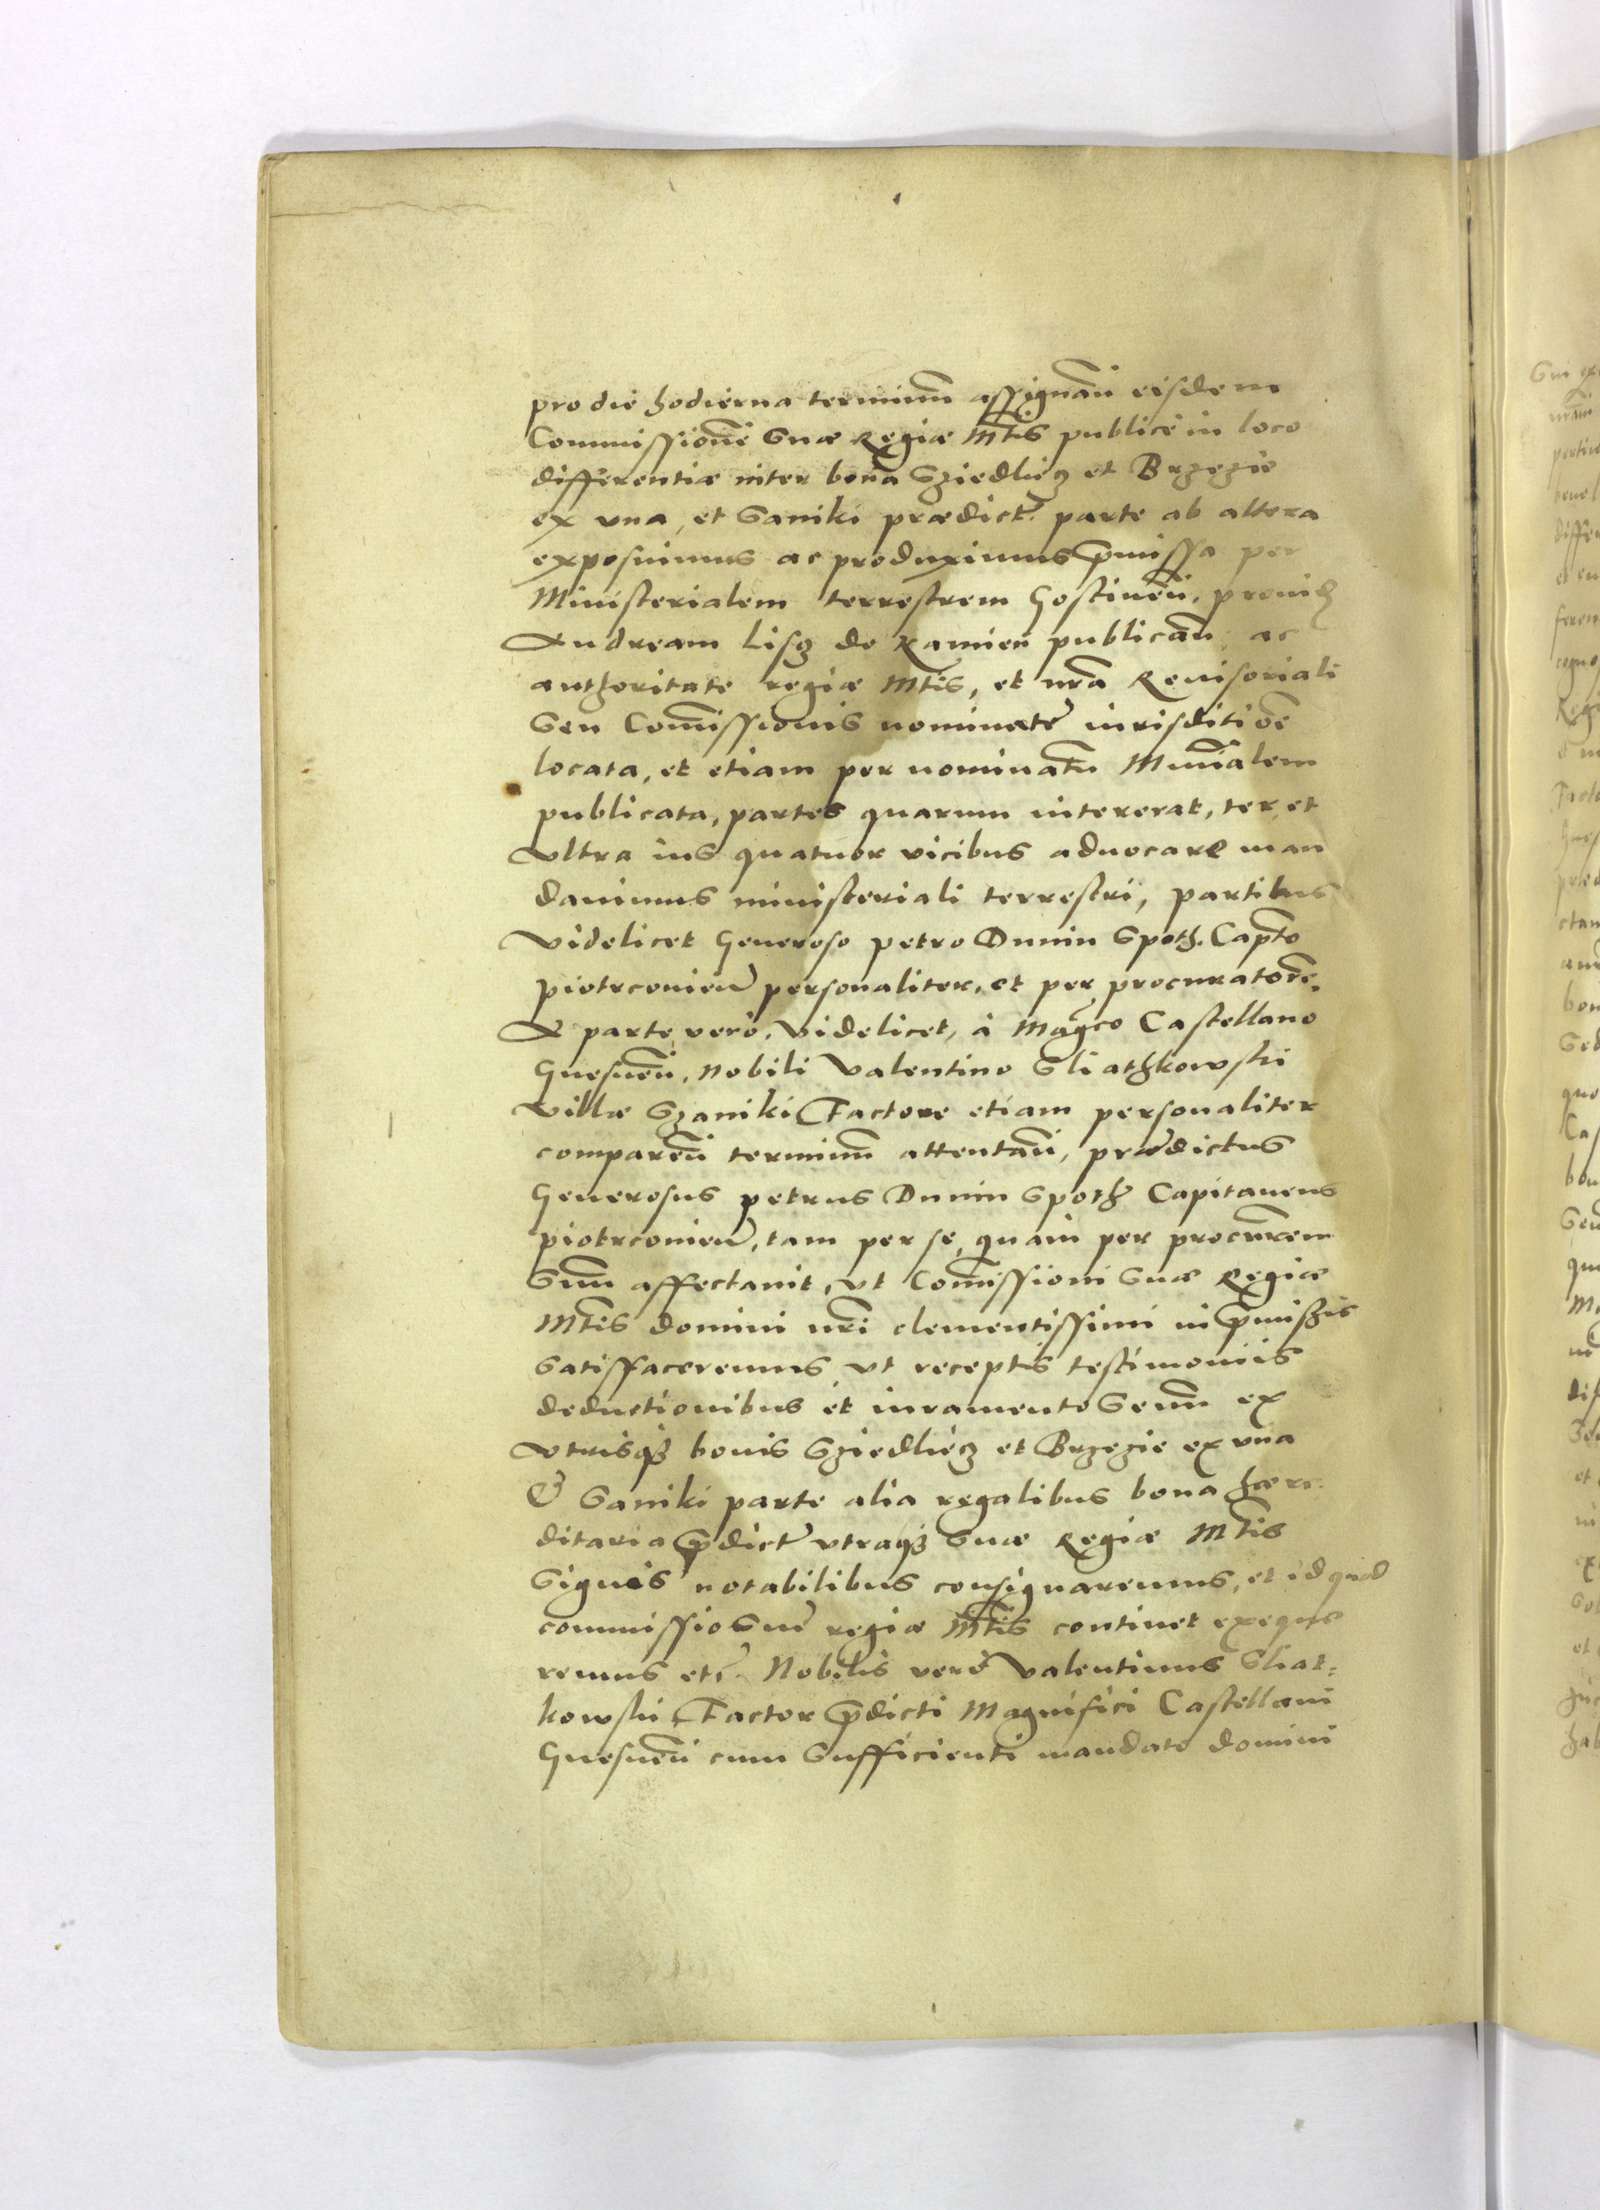 pro die hodierna terminum assignatū eisdem
Commissionē suæ Regiæ Mtis publicè in loco
differentiæ inter bona Sziedlicz et Brzezie
ex vna, et Saniki prædict parte ab altera
exposuimus ac produximus pmissa per
Ministerialem terrestrem Gostinen̄, prouid
Andream Lisz de Kamien publicatū, ac
authoritate regiæ Mtis, et nrā Reuisoriali
Seu Com̄issionis nominatæ iurisditiōe
locata, et etiam per nominatū Min̄ialem
publicata, partes quarum intererat, ter et
vltra ius quatuor vicibus aduocare man
dauimus ministeriali terrestri, partibus
videlicet Generoso petro Dunin Spoth. Capto
piotrconien personaliter, et per procuratorē.
A parte verò, videlicet, à Magco Castellano
Gnesnen̄, Nobili Valentino Sliathkowski
villæ Szaniki Factore etiam personaliter
comparen̄ terminum attentan̄, prædictus
Generosus petrus Dunin Spoth Capitaneus
piotrconien, tam per se, quàm per procurem
Suum affectauit, vt Com̄issioni suæ Regiæ
Mtis domini nr̄i clementissimi in pmissis
Satisfaceremus vt receptis testimoniis
deductionibus et iuramento Senum ex
vtrisqz bonis Sziedlicz et Brzezie ex vna
& Saniki parte alia regalibus bona hære
ditaria pdict vtraqz suæ Regiæ Mtis
Signis notabilibus consignaremus, et id quod
commissio Suæ regiæ Mtis continet exeque
remus etc. Nobilis verò Valentinus Sliat=
kowski Factor pdicti Magnifici Castellani
Gnesnen̄ cum Sufficienti mandato domini